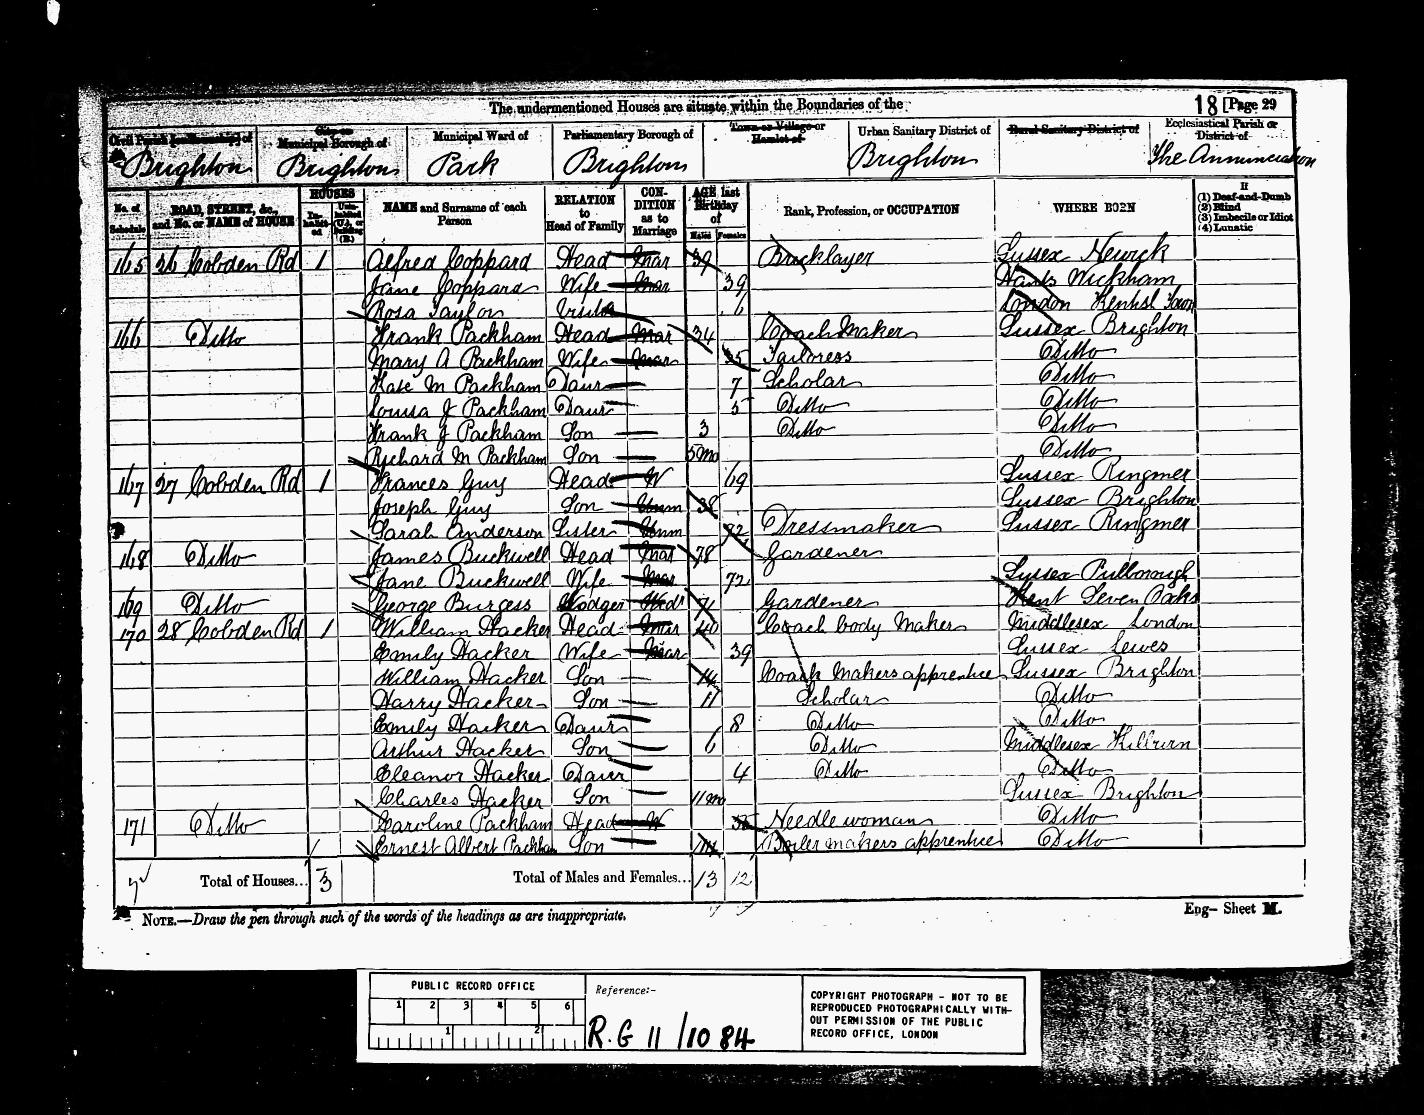 The undermentioned Houses are situate within the Boundaries of the
18 [Page 29
Civil Parish [or Township] of
City or Municipal Borough of
Municipal Ward of
Parliamentary Borough of
Town or Village or Hamlet of
Urban Sanitary District of
Rural Sanitary District of
Ecclesiastical Parish or District of
Brighton Brighton Park Brighton Brighton The Annunciation
No. of Schedule
ROAD, STREET, &c., and No. or NAME of HOUSE
HOUSES
In-habit-ed
Unin-habited (U.), or Building (B.)
NAME and Surname of each Person
RELATION to Head of Family
CON-DITION as to Marriage
AGE last Birthday of
Males Females
Rank, Profession, or OCCUPATION
WHERE BORN
If
(1) Deaf-and-Dumb
(2) Blind
(3) Imbecile or Idiot
(4) Lunatic
165 26 Cobden Rd 1 Alfred Coppard Head Mar 39 Bricklayer Sussex Newick
Jane Coppard Wife Mar 39 Hants Wickham
Rosa Taylor Visitor 6 London Town
166 Ditto Frank Packham Head Mar 34 Coach Maker Sussex Brighton
Mary A Packham Wife Mar 35 Tailoress Ditto
Kate M Packham Daur 7 Scholar Ditto
Louisa J Packham Daur 5 Ditto Ditto
Frank J Packham Son 3 Ditto Ditto
Richard M Packham Son 5 mo Ditto
167 27 Cobden Rd 1 Frances Guy Head W 69 Sussex Ringmer
Joseph Guy Son Unm 38 Sussex Brighton
Sarah Anderson Sister Unm Dressmaker Sussex Ringmer
168 Ditto James Buckwell Head Mar 78 Gardener
Jane Buckwell Wife Mar 72 Sussex Pulborough
169 Ditto George Burgess Lodger Widr 71 Gardener Kent Seven Oaks
170 28 Cobden Rd 1 William Hacker Head Mar 40 Coach body Maker Middlesex London
Emily Hacker Wife Mar 39 Sussex Lewes
William Hacker Son 14 Coach Makers apprentice Sussex Brighton
Harry Hacker Son 11 Scholar Ditto
Emily Hacker Daur 8 Ditto Ditto
Arthur Hacker Son 6 Ditto Middlesex Kilburn
Eleanor Hacker Daur 4 Ditto Ditto
Charles Hacker Son 11 mo Sussex Brighton
171 Ditto Caroline Packham Head W Needlewoman Ditto
Ernest Albert Packham Son 14 Boiler makers apprentice Ditto
Total of Houses... 3 Total of Males and Females... 13 12
NOTE.—Draw the pen through such of the words of the headings as are inappropriate.
Eng– Sheet M.
PUBLIC RECORD OFFICE
1 2 3 4 5 6
1 2
Reference:-
R.G 11 / 1084
COPYRIGHT PHOTOGRAPH - NOT TO BE
REPRODUCED PHOTOGRAPHICALLY WITH-
OUT PERMISSION OF THE PUBLIC
RECORD OFFICE, LONDON